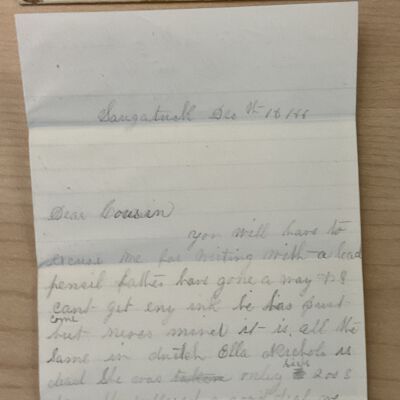 Saugatuck Dec 18th 188
Dear Cousin
You will have to
excuse me for writing with a lead
pensil father have gone a way & I
cant get eny ink he has just
come
but never mind it is all the
same in dutch Ella Nichols is
dead She was only sick 2 or 3